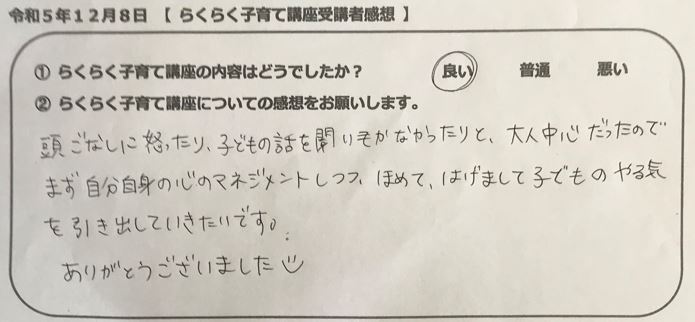 令和5年12月8日 【 らくらく子育て講座受講者感想 】
① らくらく子育て講座の内容はどうでしたか？ 良い 普通 悪い
② らくらく子育て講座についての感想をお願いします。
頭ごなしに怒ったり、子どもの話を聞いてなかったりと、大人中心だったので
まず自分自身の心のマネジメントしつつ、ほめて、はげまして子どものやる気
を引き出していきたいです。
ありがとうございました